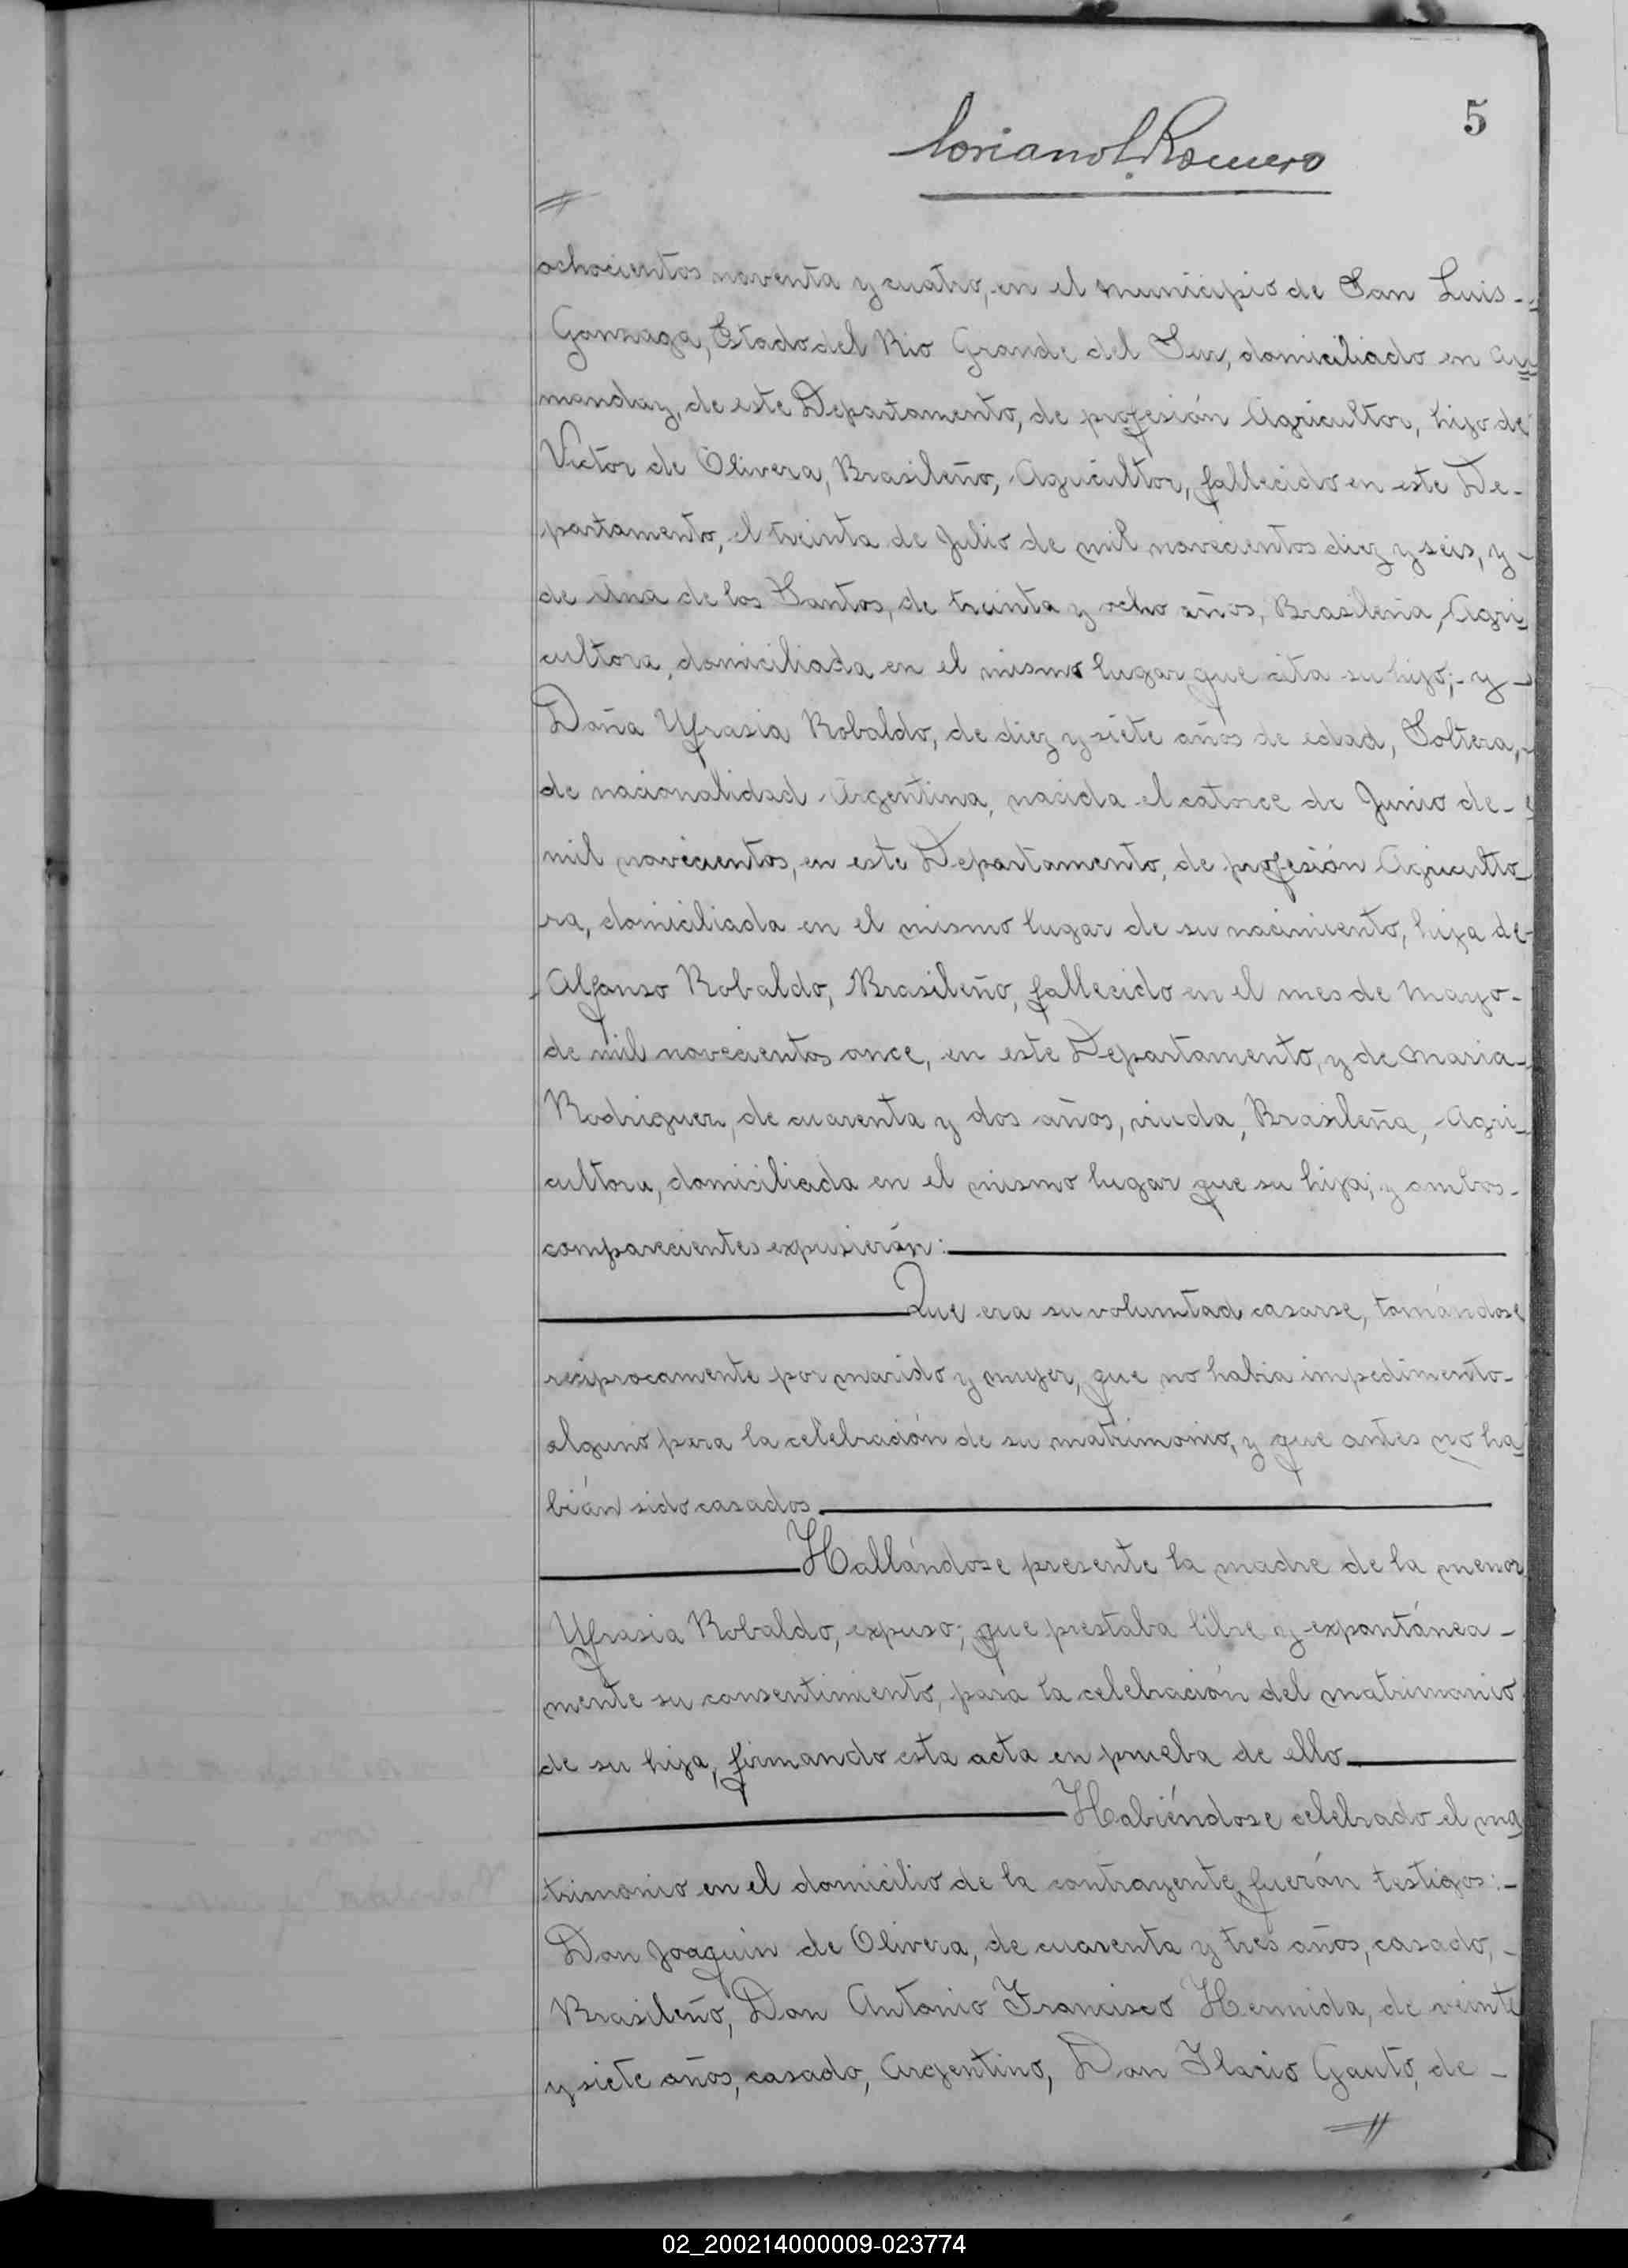 5
Soriano L. Romero
//
ochocientos noventa y cuatro, en el municipio de San Luis -
Gonzaga, Estado del Rio Grande del Sur, domiciliado en
monday, de este Departamento, de profesión Agricultor, hijo de
Victor de Olivera, Brasileño, Agricultor, fallecido en este De-
partamento, el treinta de Julio de mil novecientos diez y seis, y -
de Ana de los Santos, de treinta y ocho años, Brasileña, Agri
cultora, domiciliada en el mismo lugar que cita su hijo; - y -
Doña Ufrasia Robaldo, de diez y siete años de edad, Soltera, -
de nacionalidad Argentina, nacida el catorce de Junio de -
mil novecientos, en este Departamento, de profesión Agriculto
ra, domiciliada en el mismo lugar de su nacimiento, hija de -
Alfonso Robaldo, Brasileño, fallecido en el mes de Mayo -
de mil novecientos once, en este Departamento, y de Maria -
Rodriguez, de cuarenta y dos años, viuda, Brasileña, Agri
cultora, domiciliada en el mismo lugar que su hija; y ambos -
comparecientes expusierón:
Que era su voluntad casarse, tomándose
reciprocamente por marido y mujer, que no habia impedimento -
alguno para la celebración de su matrimonio, y que antes no ha
bián sido casados.
Hallándose presente la madre de la menor
Ufrasia Robaldo, expuso; que prestaba libre y expontánea -
mente su consentimiento, para la celebración del matrimonio
de su hija, firmando esta acta en prueba de ello
Habiéndose celebrado el ma
trimonio en el domicilio de la contrayente, fuerón testigos: -
Don Joaquin de Olivera, de cuarenta y tres años, casado, -
Brasileño, Don Antonio Francisco Hermida, de veinte
y siete años, casado, Argentino, Don Ilario Gauto, de -
//
02_200214000009-023774